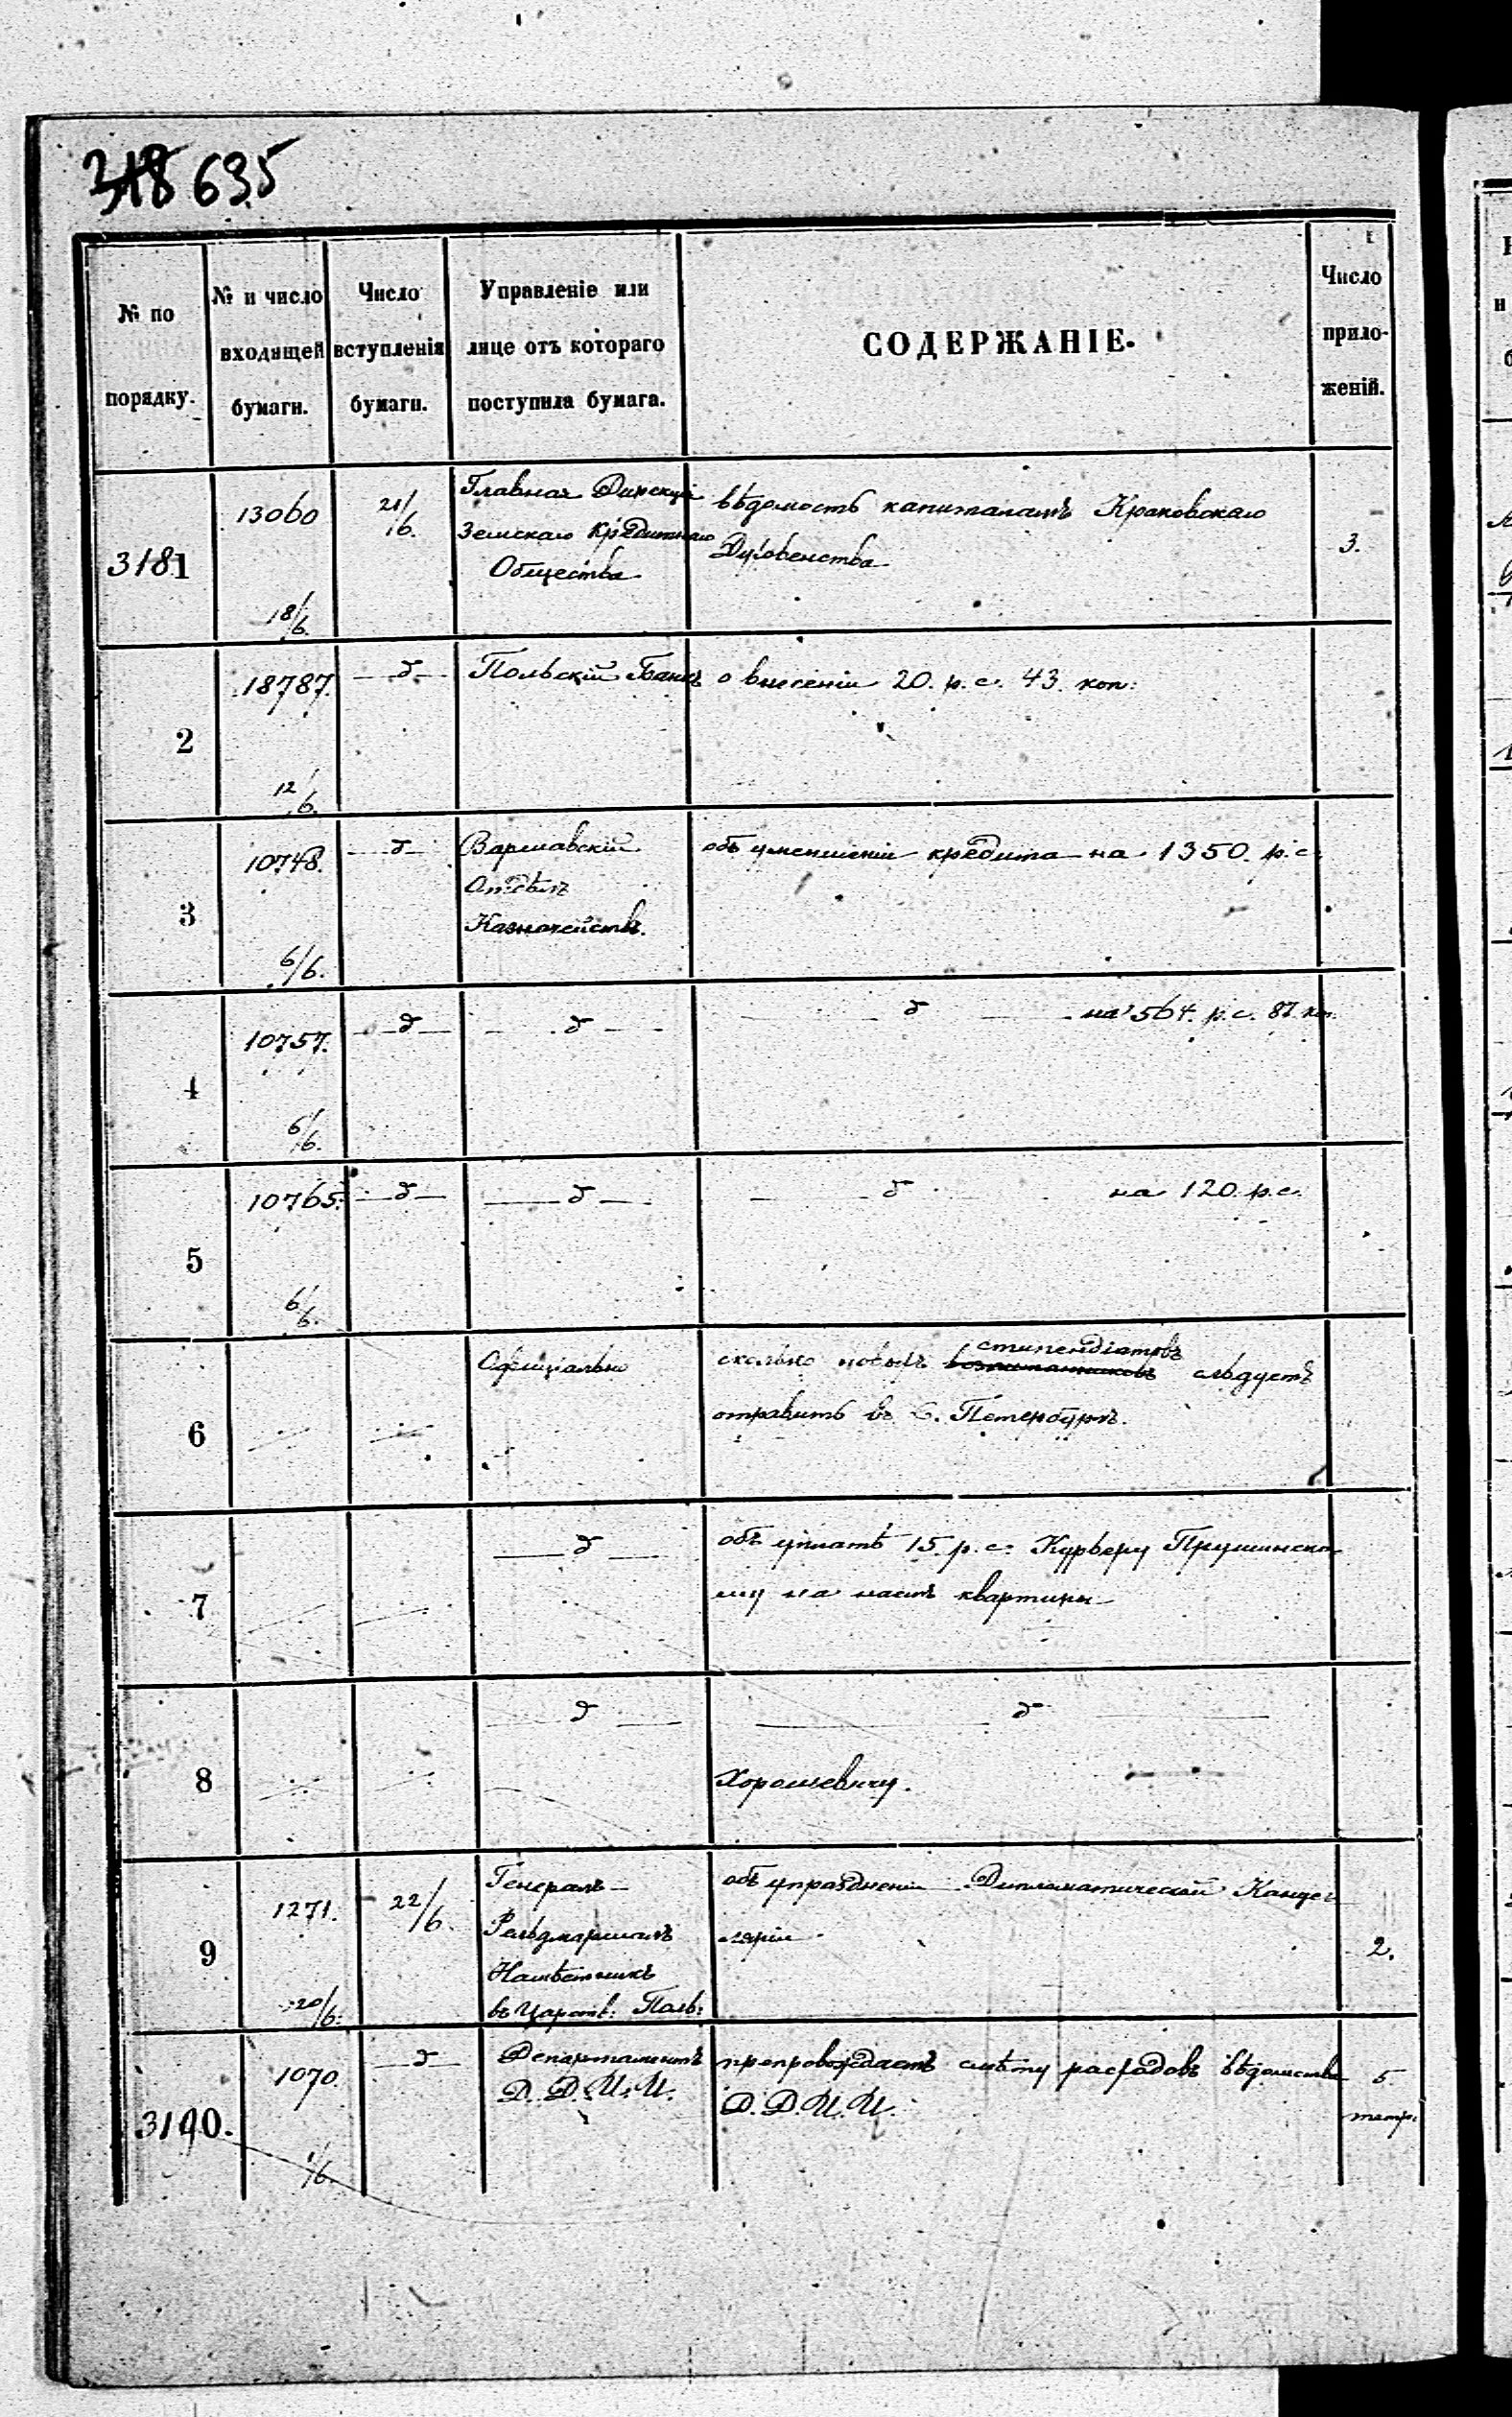 318 635
№ по порядку.
№ и число входящей бумаги.
Число вступленія бумаги.
Управленіе или лице отъ котораго поступила бумага.
СОДЕРЖАНІЕ.
Число приложеній.
3181
13060
18/6.
21/6.
Главная Дирекція
Земскаго Кредитнаго
Общества
вѣдомость капиталамъ Краковскаго
Духовенства
3.
2
18787.
12/6.
д
Польскій Банкъ
о внесеніи 20. р. с. 43. коп:
3
10748.
6/6.
д
Варшавскій
Отдѣлъ
Казначейств.
объ уменшеніи кредита на 1350. р. с.
4
10757.
6/6.
д
д
д на 564. р. с. 87. коп.
5
10765.
6/6.
д
д
д на 120. р. с.
6
Офиціально
стипендіатовъ
сколько новыхъ воспитанниковъ слѣдуетъ
отправить въ С. Петербургъ.
7
д
объ уплатѣ 15. р. с. Курьеру Прушинско
му на наемъ квартиры
8
д
д
Хорошевичу.
9
1271.
20/6.
22/6.
Генералъ-
Фельдмаршалъ
Намѣстникъ
въ Царств: Поль:
объ упраздненіи Дипломатической Канце
ляріи
2.
3190.
1070.
1/6.
д
Департаментъ
Д. Д. И. И.
препровождаетъ смѣту расходовъ вѣдомства
Д. Д. И. И.
5.
тетр.